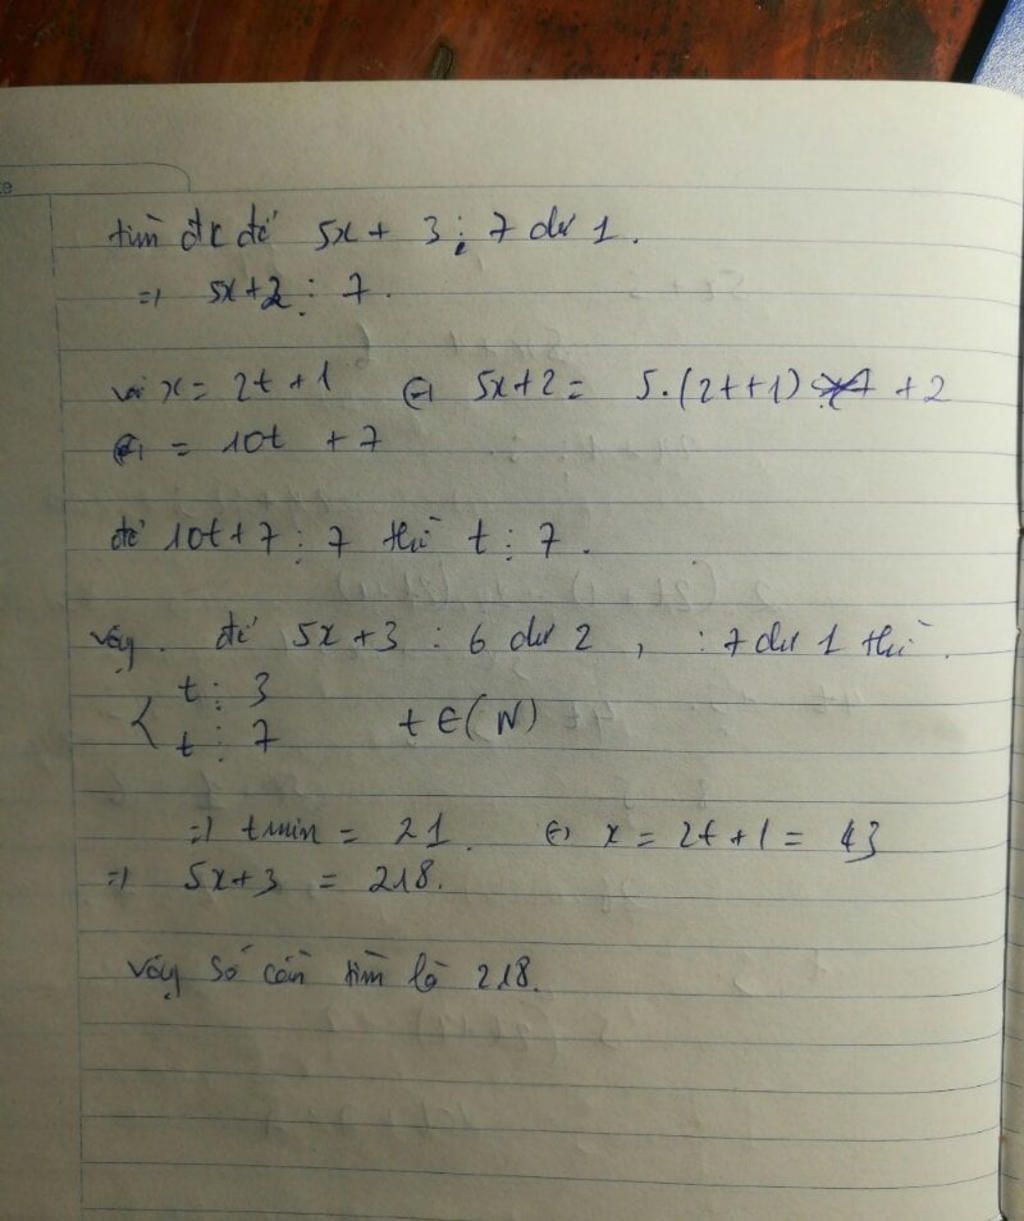 tìm đk để 5x + 3 ⋮ 7 dư 1.
=> 5x+2 ⋮ 7.
với x = 2t + 1 <=> 5x+2 = 5.(2t+1) +2
<=> = 10t + 7
để 10t+7 ⋮ 7 thì t ⋮ 7.
Vậy. để 5x+3 : 6 dư 2, : 7 dư 1 thì.
t ⋮ 3
t ⋮ 7 t ∈ (N)
=> tmin = 21. <=> x = 2t+1 = 43
=> 5x+3 = 218.
Vậy số cần tìm là 218.